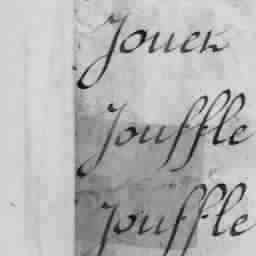 Jouer
Jouffle
Jouffle